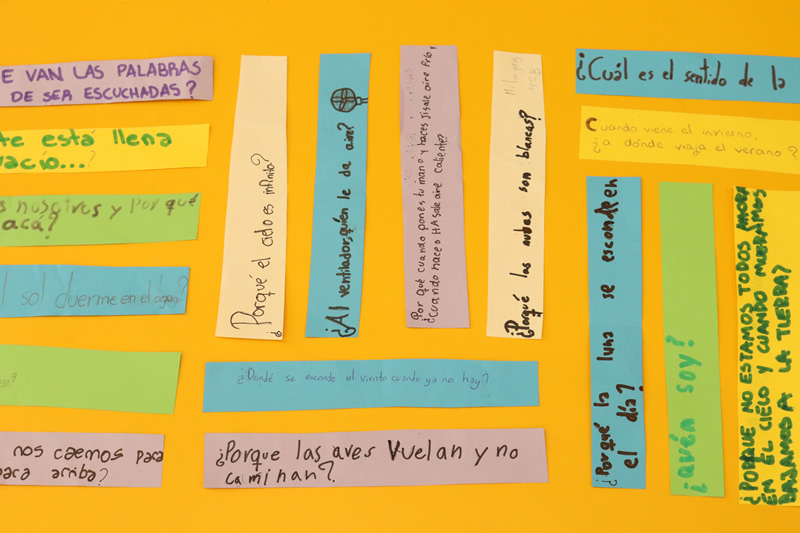 E VAN LAS PALABRAS
DE SER ESCUCHADAS?
te está llena
vacío...?
s nosotros y por qué
acá?
l sol duerme en el agua?
nos caemos para
para arriba?
¿Porqué el cielo es infinito?
¿Al ventilador, quién le da aire?
¿Por qué cuando pones tu mano y haces js sale aire frío y
¿cuando haces HA sale aire caliente?
¿Porqué las nubes son blancas?
M. Luz
4SB
¿Dónde se esconde el viento cuando ya no hay?
¿Porque las aves Vuelan y no
caminan?
¿Cuál es el sentido de la
Cuando viene el invierno,
¿a dónde viaja el verano?
¿Porqué la luna se esconde en
el día?
¿quén soy?
¿PORQUE NO ESTAMOS TODOS AHORA
EN EL CIELO Y CUANDO MUERAMOS
BAJAMOS A LA TIERRA?